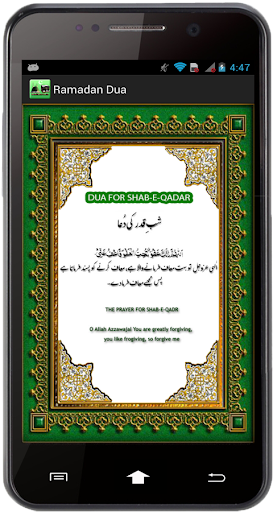 4:47
Ramadan Dua
DUA FOR SHAB-E-QADAR
شب قدر کی دُعا
اَللّٰهُمَّ اِنَّكَ عَفُوٌّ تُحِبُّ الْعَفْوَ فَاعْفُ عَنِّيْ
تو بہت معاف فرمانے والا ہے، معاف کرنے کو پسند فرماتا ہے
پس مجھے معاف فرما دے۔
THE PRAYER FOR SHAB-E-QADR
O Allah Azzawajal You are greatly forgiving,
you like frogiving, so forgive me